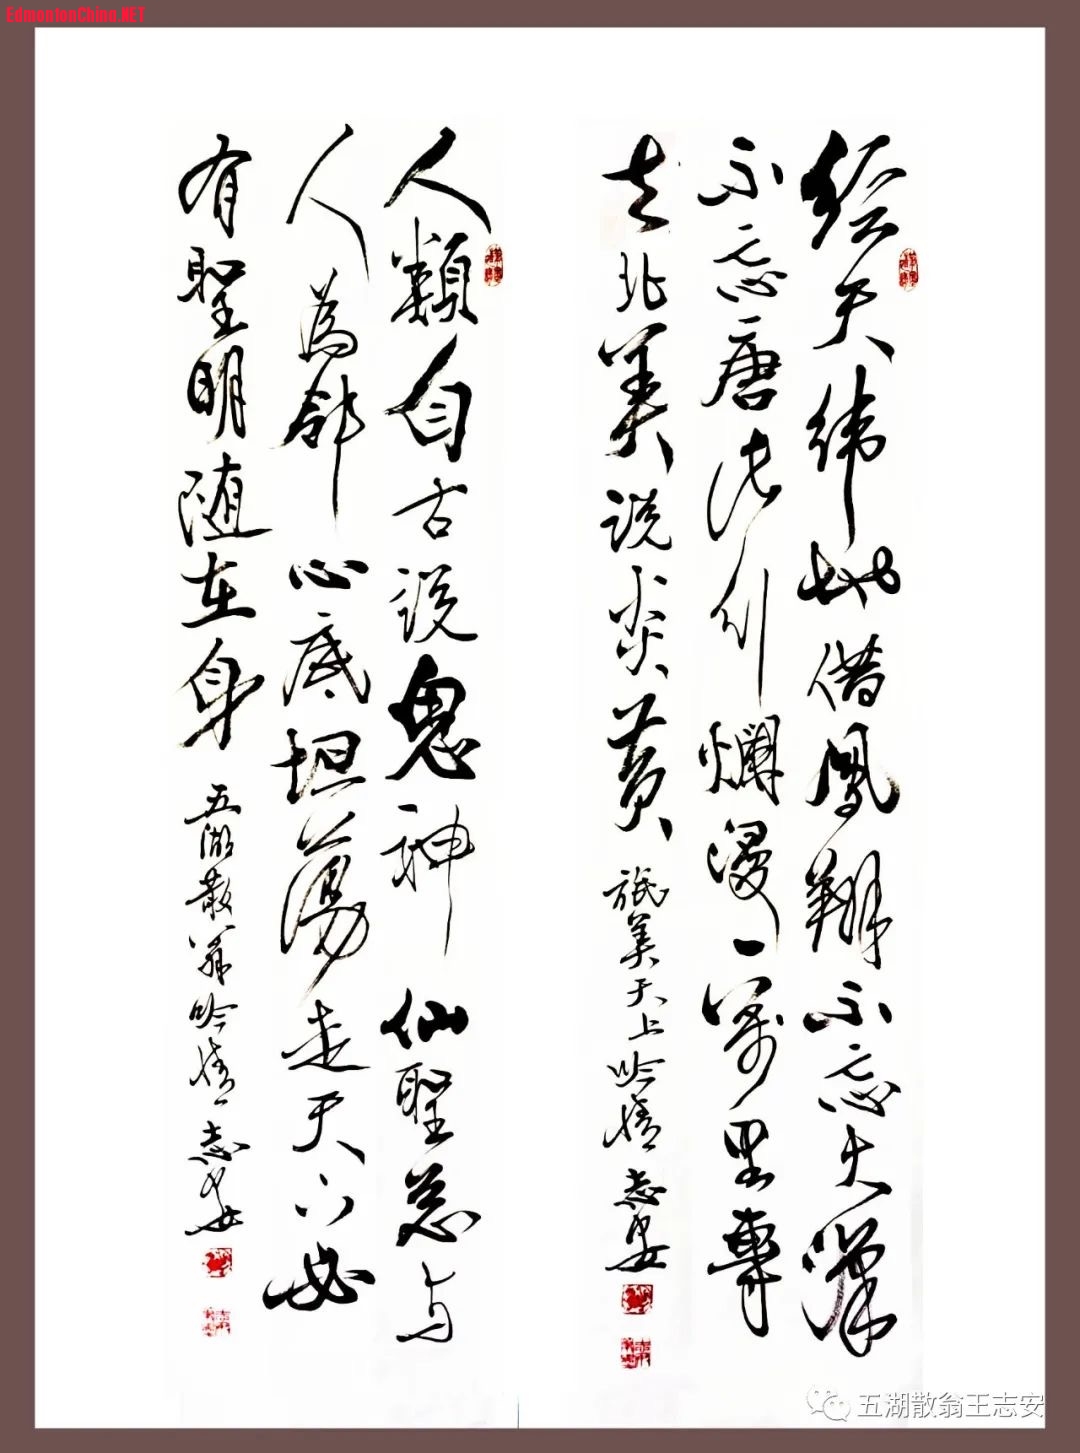 EdmontonChina.NET
经天纬地借鳳翔不忘大漢
不忘唐诗行爛漫一萬里專
去北美说炎黄
旅美天上吟情 志安
人類自古说鬼神仙聖总与
人為邻心底坦蕩走天下必
有聖明随在身
五湖散翁吟情 志安
五湖散翁王志安